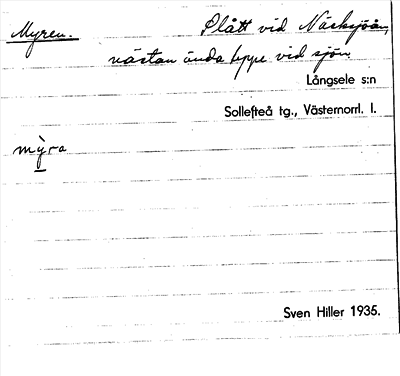 Myren. Slått vid Näcksjöån,
nästan ända uppe vid sjön
Långsele s:n
Sollefteå tg., Västernorrl. l.
my̑ra
Sven Hiller 1935.